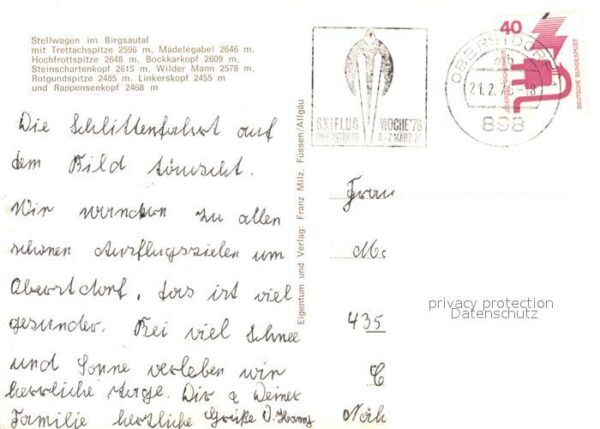 Stellwagen im Birgsautal
mit Trettachspitze 2596 m, Mädelegabel 2646 m,
Hochfrottspitze 2648 m, Bockkarkopf 2609 m,
Steinschartenkopf 2615 m, Wilder Mann 2578 m,
Rotgundspitze 2485 m, Linkerskopf 2455 m
und Rappenseekopf 2468 m
Die Schlittenfahrt auf
dem Bild täuscht.
Wir wandern zu allen
schönen Ausflugszielen um
Oberstdorf, das ist viel
gesünder. Bei viel Schnee
und Sonne verleben wir
herrliche Tage. Dir u Deiner
Familie herzliche Grüße
Eigentum und Verlag: Franz Milz, Füssen/Allgäu
SKIFLUG WOCHE '76
OBERSTDORF 4.-7. MÄRZ
OBERSTDORF
21.2.
898
40
DEUTSCHE BUNDESPOST
Frau
435
privacy protection
Datenschutz